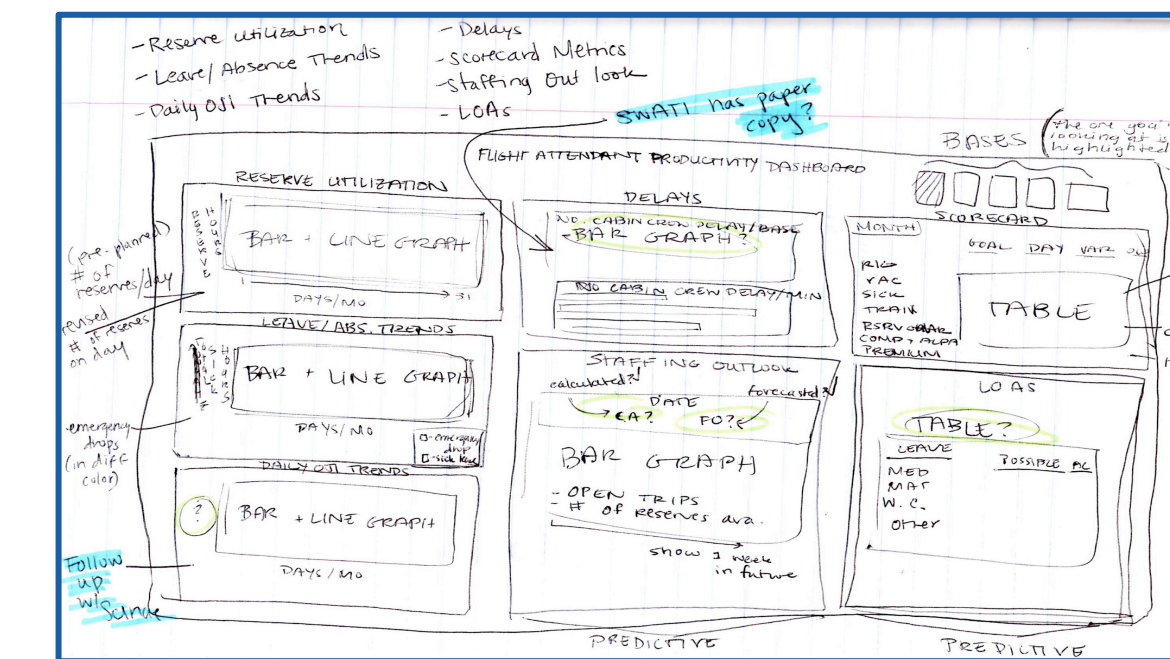 - Reserve utilization
- Leave/Absence Trends
- Daily OJI Trends
- Delays
- Scorecard Metrics
- Staffing Out look
- LOAs
SWATI has paper
copy?
BASES
looking at is
highlighted
FLIGHT ATTENDANT PRODUCTIVITY DASHBOARD
RESERVE UTILIZATION
RESERVE
HOURS
BAR + LINE GRAPH
1
31
DAYS/MO
(pre-planned)
# of
reserves/day
revised
# of reserves
on day
LEAVE/ABS. TRENDS
BAR + LINE GRAPH
DAYS/MO
□-emergency
drop
□-sick
-emergency
drops
(in diff
color)
DAILY OJI TRENDS
?
BAR + LINE GRAPH
DAYS/MO
Follow
up
w/
DELAYS
NO. CABIN CREW DELAY/BASE
-BAR GRAPH?
NO CABIN CREW DELAY/MIN
STAFFING OUTLOOK
calculated?
forecasted?
DATE
CA?
FO?
BAR GRAPH
- OPEN TRIPS
- # of Reserves ava.
show 1 week
in future
PREDICTIVE
SCORECARD
MONTH
GOAL DAY VAR
RIG
VAC
SICK
TRAIN
RSRV
COMP
PREMIUM
TABLE
LOAS
TABLE?
LEAVE
POSSIBLE
MED
MAT
W.C.
Other
PREDICTIVE